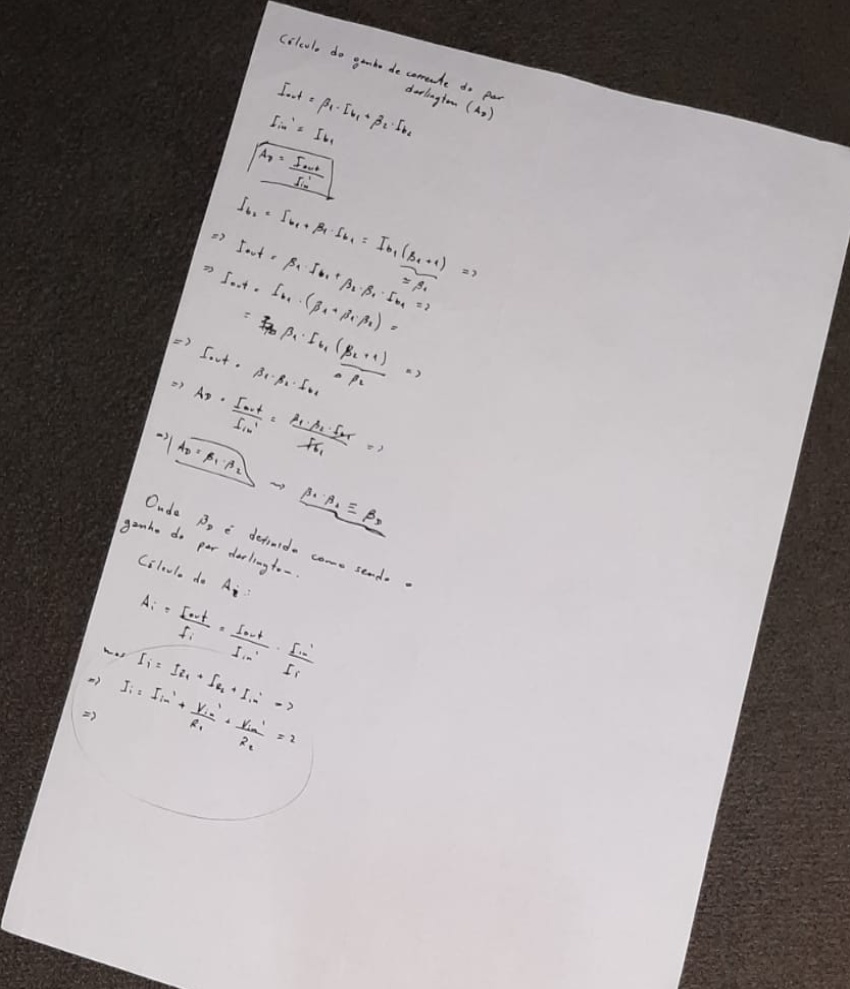 Cálculo do ganho de corrente do par
darlington (A_D)
I_out = β₁·I_b₁ + β₂·I_b₂
I_in' = I_b₁
A_D = I_out / I_in'
I_b₂ = I_b₁ + β₁·I_b₁ = I_b₁(β₁+1) =>
≃ β₁
=> I_out = β₁·I_b₁ + β₂·β₁·I_b₁ =>
=> I_out = I_b₁·(β₁+β₁·β₂) =
= β₁·I_b₁(β₂+1) =>
≃ β₂
=> I_out = β₁·β₂·I_b₁
=> A_D = I_out / I_in' = β₁·β₂·I_b₁ / I_b₁ =>
=> A_D = β₁·β₂ → β₁·β₂ ≡ β_D
Onde β_D é definido como sendo o
ganho do par darlington.
Cálculo do A_i:
A_i = I_out / I_i = I_out / I_in' · I_in' / I_i
mas I_i = I_R₁ + I_R₂ + I_in' =>
=> I_i = I_in' + V_in' / R₁ + V_in' / R₂ =>
=>